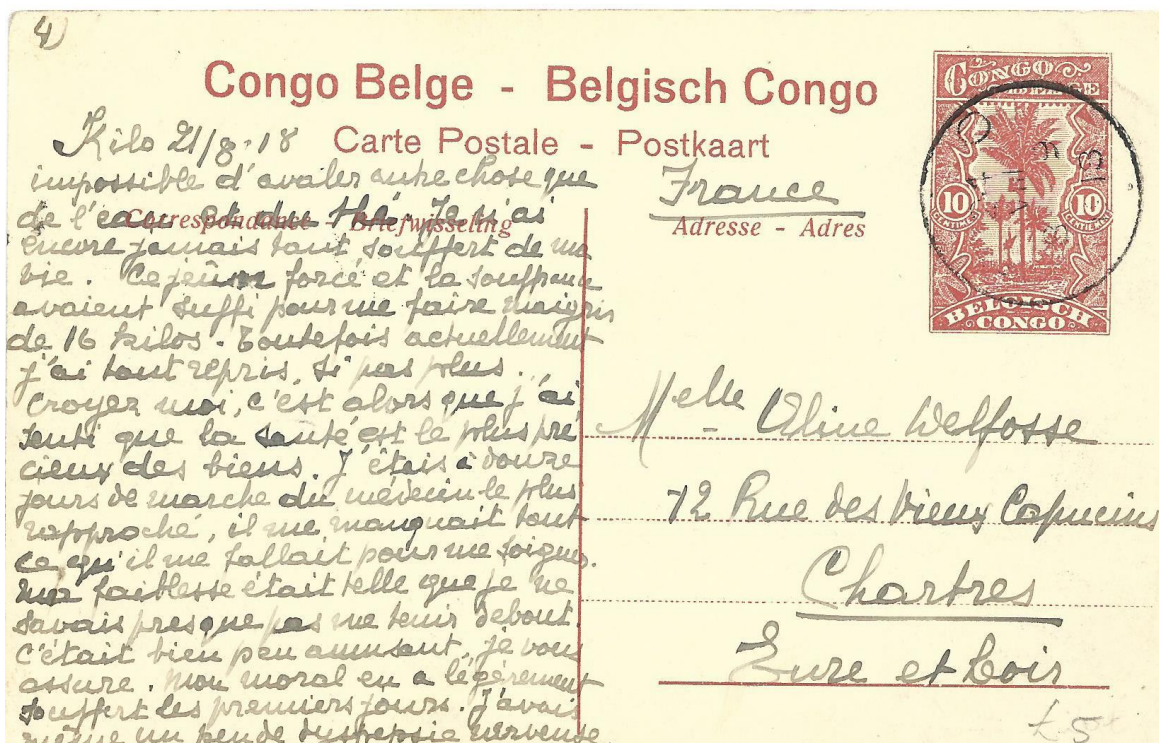 4)
Congo Belge - Belgisch Congo
Carte Postale - Postkaart
CONGO
BELGE
10 CENTIMES
10c CENTIEMEN
BELGISCH
CONGO
Kilo 21/8-18
impossible d'avaler autre chose que
de l'eau et du thé. Je n'ai
encore jamais tant souffert de ma
vie. Ce jeûne forcé et la souffrance
avaient suffi pour me faire maigrir
de 16 kilos. Toutefois actuellement
j'ai tout repris, si pas plus.
Croyez moi, c'est alors que j'ai
senti que la santé est le plus pré
cieux des biens. J'étais à douze
jours de marche du médecin le plus
rapproché, il me manquait tout
ce qu'il me fallait pour me soigner.
Ma faiblesse était telle que je ne
savais presque pas me tenir debout.
C'était bien peu amusant, je vous
assure. Mon moral en a légèrement
souffert les premiers jours. J'avais
même un peu de dyspepsie nerveuse
Correspondance Briefwisseling
France
Adresse - Adres
Melle Eline Delfosse
72 Rue des Vieux Capucins
Chartres
Eure et Loir
£5